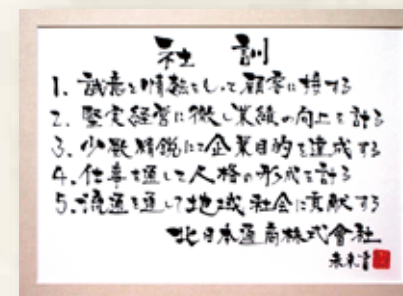 社訓
1. 誠意と情熱をもって顧客に接する
2. 堅実経営に徹し業績の向上を計る
3. 少数精鋭にて企業目的を達成する
4. 仕事を通して人格の形成を計る
5. 流通を通して地域社会に貢献する
北日本通商株式會社